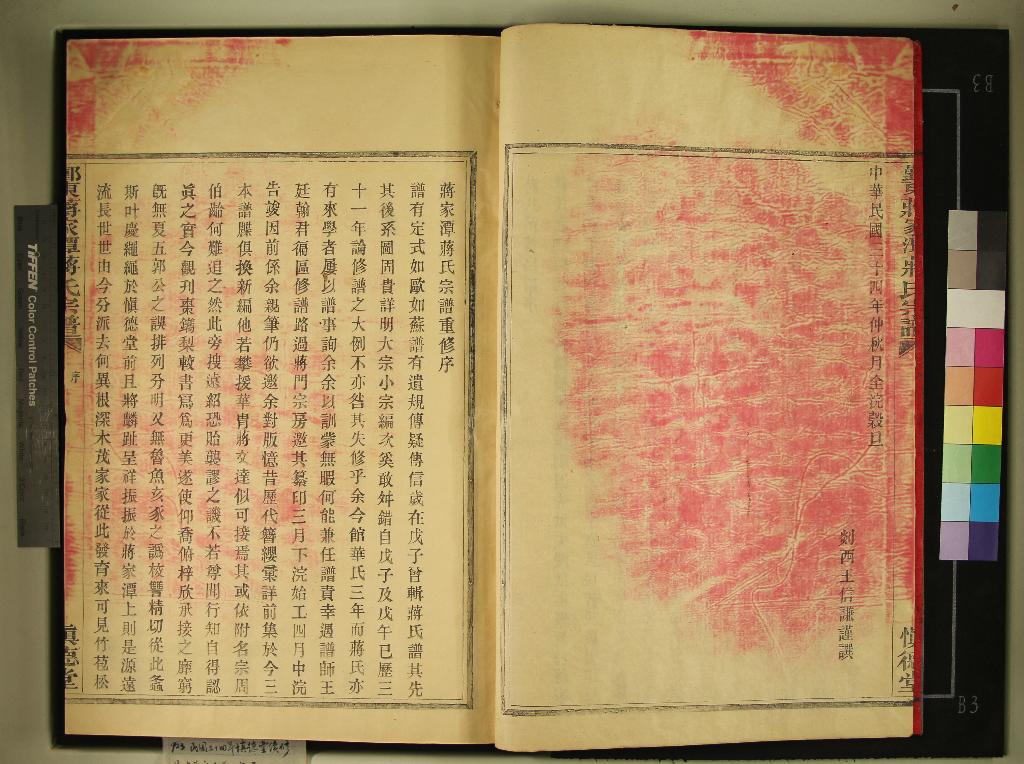 中華民國三十四年仲秋月全浣穀旦
剡西王信謙謹譔
鄞東蔣家潭蔣氏宗譜
慎德堂
蔣家潭蔣氏宗譜重修序
譜有定式如歐如蘇譜有遺規傳疑傳信歲在戊子曾輯蔣氏譜其先
其後系圖固貴詳明大宗小宗編次奚敢舛錯自戊子及戊午已歷三
十一年論修譜之大例不亦咎其失修乎余今館華氏三年而蔣氏亦
有來學者屢以譜事詢余余以訓蒙無暇何能兼任譜責幸遇譜師王
廷翰君衙區修譜路過蔣門宗房邀其纂印三月下浣始工四月中浣
告竣因前係余親筆仍欲邀余對版憶昔歷代簪纓彙詳前集於今三
本譜牒俱換新編他若攀援華胄將文達似可接焉其或依附名宗周
伯齡何難追之然此旁搜遠紹恐貽襲謬之譏不若尊聞行知自得認
眞之實今觀刋棗鐫梨較書寫爲更美遂使仰喬俯梓欣承接之靡窮
旣無夏五郭公之誤排列分明又無魯魚亥豕之譌校讐精切從此螽
斯叶慶繩繩於愼德堂前且將麟趾呈祥振振於蔣家潭上則是源遠
流長世世由今分派去何異根深木茂家家從此發育來可見竹苞松
鄞東蔣家潭蔣氏宗譜
序
愼德堂
TIFFEN Color Control Patches
B3
B3